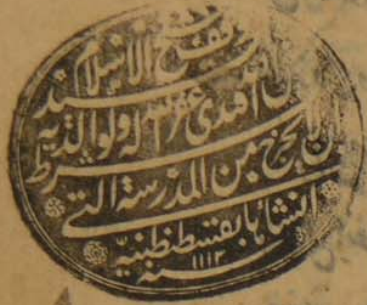 شيخ الاسلام
افندى غفر الله له ولوالديه
بشرط ان لا يخرج من المدرسة التى
انشاها بقسطنطنية
سنة ١١١٣